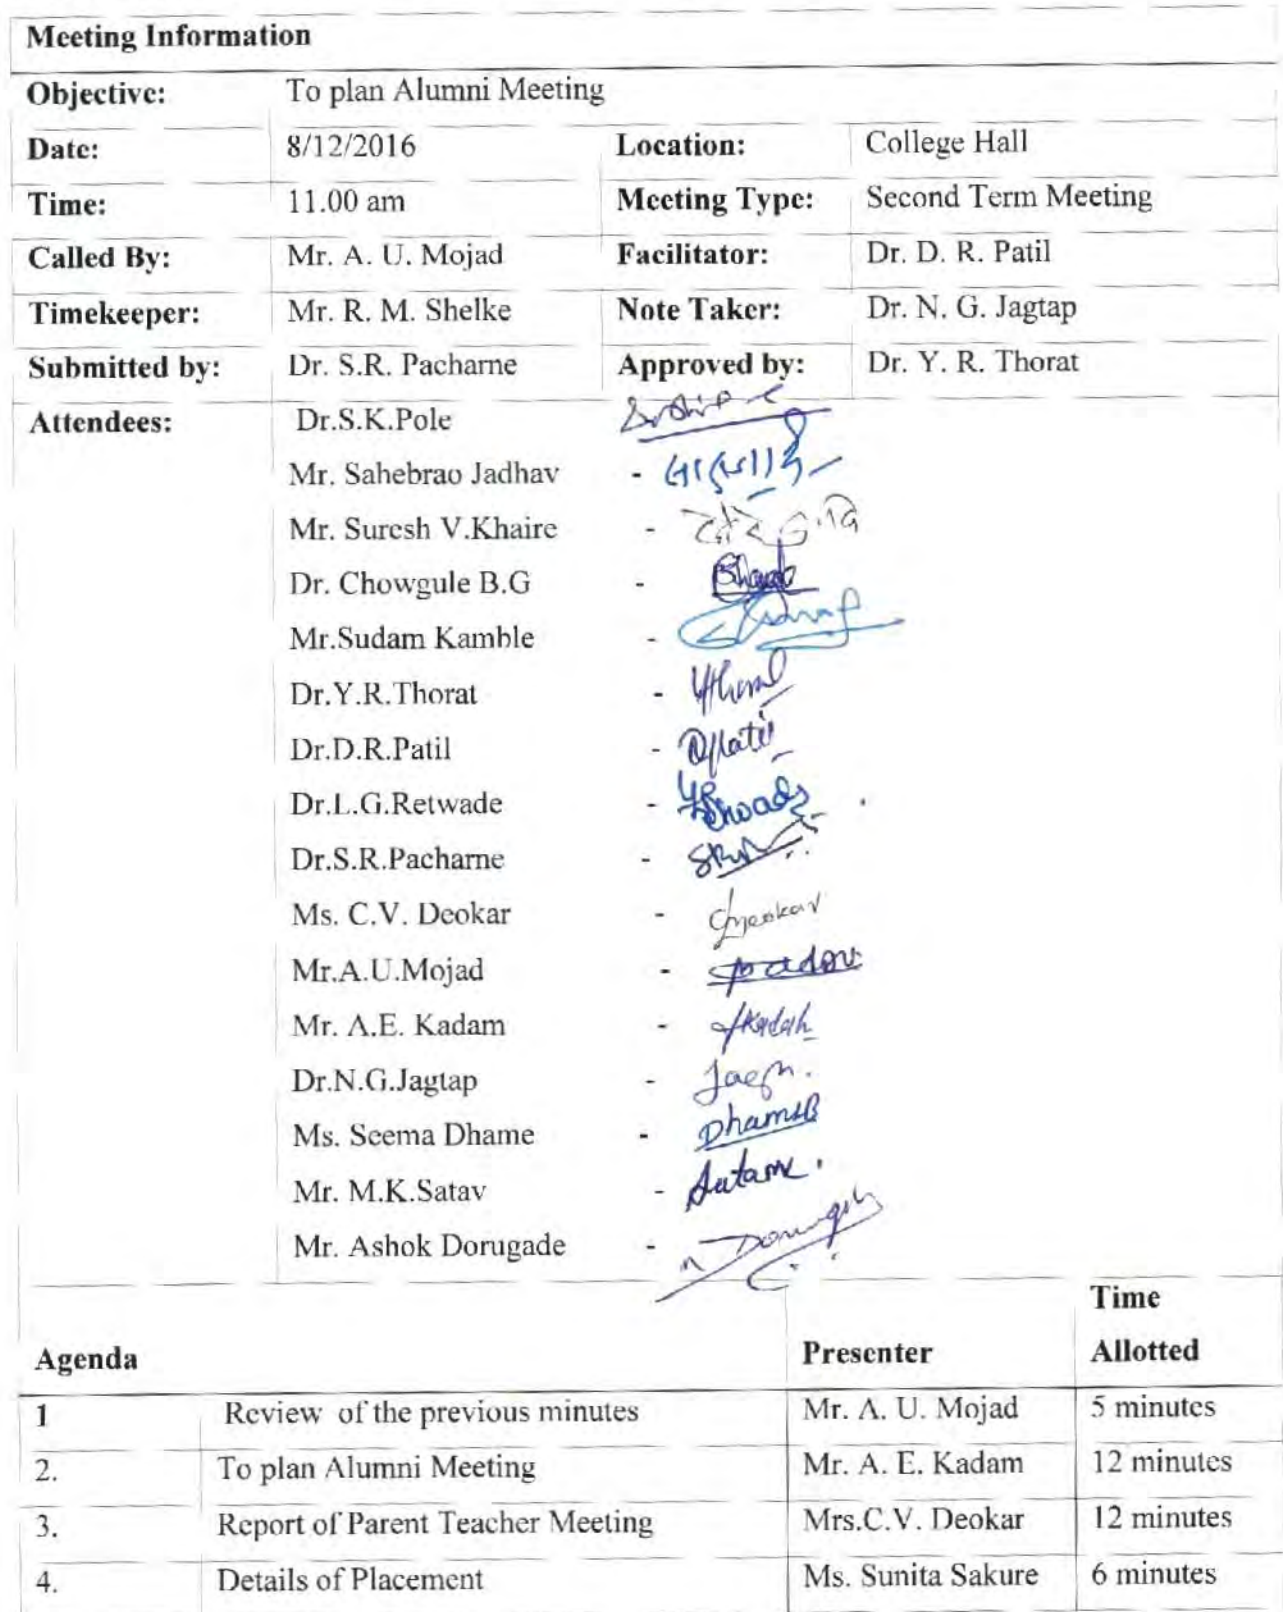 Meeting Information
Objective: To plan Alumni Meeting
Date: 8/12/2016 Location: College Hall
Time: 11.00 am Meeting Type: Second Term Meeting
Called By: Mr. A. U. Mojad Facilitator: Dr. D. R. Patil
Timekeeper: Mr. R. M. Shelke Note Taker: Dr. N. G. Jagtap
Submitted by: Dr. S.R. Pacharne Approved by: Dr. Y. R. Thorat
Attendees: Dr.S.K.Pole
Mr. Sahebrao Jadhav -
Mr. Suresh V.Khaire -
Dr. Chowgule B.G -
Mr.Sudam Kamble -
Dr.Y.R.Thorat -
Dr.D.R.Patil -
Dr.L.G.Retwade -
Dr.S.R.Pacharne -
Ms. C.V. Deokar -
Mr.A.U.Mojad -
Mr. A.E. Kadam -
Dr.N.G.Jagtap -
Ms. Seema Dhame -
Mr. M.K.Satav -
Mr. Ashok Dorugade -
Agenda Presenter Time Allotted
1 Review of the previous minutes Mr. A. U. Mojad 5 minutes
2. To plan Alumni Meeting Mr. A. E. Kadam 12 minutes
3. Report of Parent Teacher Meeting Mrs.C.V. Deokar 12 minutes
4. Details of Placement Ms. Sunita Sakure 6 minutes